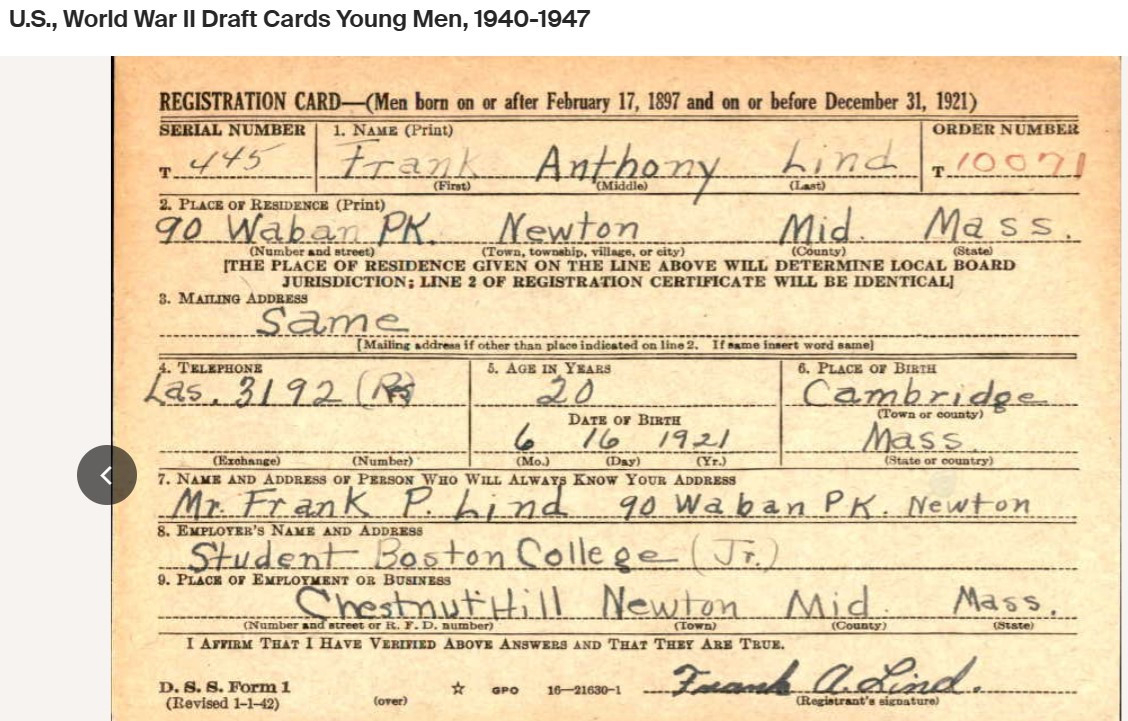 U.S., World War II Draft Cards Young Men, 1940-1947
REGISTRATION CARD—(Men born on or after February 17, 1897 and on or before December 31, 1921)
SERIAL NUMBER 1. NAME (Print) ORDER NUMBER
T 445 Frank Anthony Lind T 10071
(First) (Middle) (Last)
2. PLACE OF RESIDENCE (Print)
90 Waban PK. Newton Mid. Mass.
(Number and street) (Town, township, village, or city) (County) (State)
[THE PLACE OF RESIDENCE GIVEN ON THE LINE ABOVE WILL DETERMINE LOCAL BOARD
JURISDICTION; LINE 2 OF REGISTRATION CERTIFICATE WILL BE IDENTICAL]
3. MAILING ADDRESS
Same
[Mailing address if other than place indicated on line 2. If same insert word same]
4. TELEPHONE 5. AGE IN YEARS 6. PLACE OF BIRTH
Las. 3192 20 Cambridge
DATE OF BIRTH (Town or county)
6 16 1921 Mass
(Exchange) (Number) (Mo.) (Day) (Yr.) (State or country)
7. NAME AND ADDRESS OF PERSON WHO WILL ALWAYS KNOW YOUR ADDRESS
Mr. Frank P. Lind 90 Waban PK. Newton
8. EMPLOYER'S NAME AND ADDRESS
Student Boston College (Jr.)
9. PLACE OF EMPLOYMENT OR BUSINESS
Chestnut Hill Newton Mid. Mass.
(Number and street or R. F. D. number) (Town) (County) (State)
I AFFIRM THAT I HAVE VERIFIED ABOVE ANSWERS AND THAT THEY ARE TRUE.
D. S. S. Form 1 Frank A. Lind.
(Revised 1-1-42) (over) ☆ GPO 16—21630-1 (Registrant's signature)